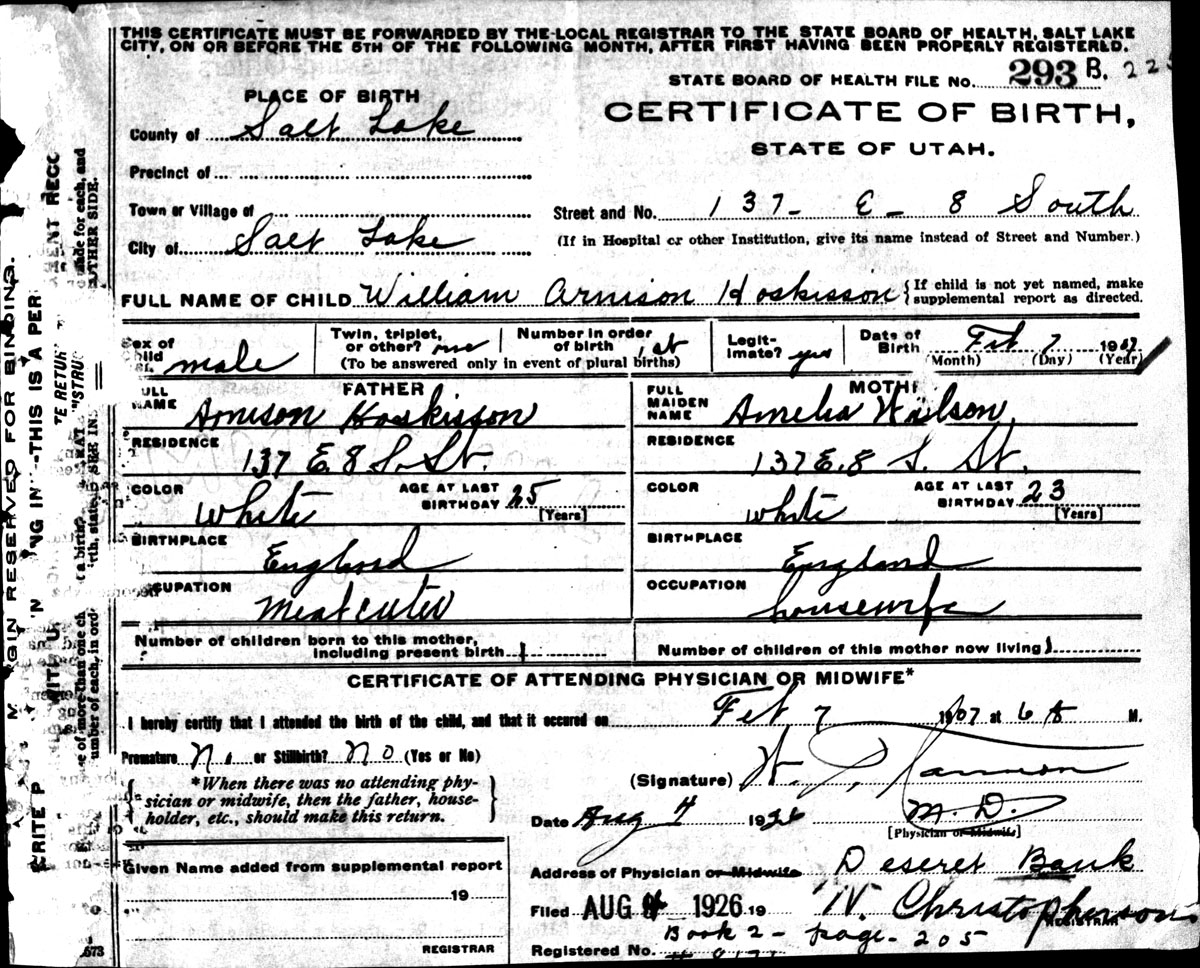 THIS CERTIFICATE MUST BE FORWARDED BY THE LOCAL REGISTRAR TO THE STATE BOARD OF HEALTH, SALT LAKE
CITY, ON OR BEFORE THE 5TH OF THE FOLLOWING MONTH, AFTER FIRST HAVING BEEN PROPERLY REGISTERED.
STATE BOARD OF HEALTH FILE No. 293 B. 22
PLACE OF BIRTH
CERTIFICATE OF BIRTH,
County of Salt Lake
STATE OF UTAH.
Precinct of
Town or Village of
Street and No. 137- E- 8 South
City of Salt Lake
(If in Hospital or other Institution, give its name instead of Street and Number.)
FULL NAME OF CHILD William Arnison Hoskisson { If child is not yet named, make
supplemental report as directed.
Sex of Child male
Twin, triplet, or other? one
Number in order of birth 1st
(To be answered only in event of plural births)
Legitimate? yes
Date of Birth Feb 7 1907
(Month) (Day) (Year)
FATHER
FULL NAME Arnison Hoskisson
RESIDENCE 137 E. 8 S. St.
COLOR White
AGE AT LAST BIRTHDAY 25
[Years]
BIRTHPLACE England
OCCUPATION Meat cutter
MOTH
FULL MAIDEN NAME Amelia Wilson
RESIDENCE 137 E. 8 S. St.
COLOR white
AGE AT LAST BIRTHDAY 23
[Years]
BIRTHPLACE England
OCCUPATION housewife
Number of children born to this mother,
including present birth 1
Number of children of this mother now living 1
CERTIFICATE OF ATTENDING PHYSICIAN OR MIDWIFE*
I hereby certify that I attended the birth of the child, and that it occured on Feb 7 1907 at 6 A M.
Premature No or Stillbirth? No (Yes or No)
*When there was no attending phy-
sician or midwife, then the father, house-
holder, etc., should make this return.
(Signature) W.
M.D.
Date Aug 4 1926
[Physician or Midwife]
Given Name added from supplemental report
19
REGISTRAR
Address of Physician or Midwife Deseret Bank
Filed AUG 4 1926 19 W. Christopherson
REGISTRAR
Book 2 - page - 205
Registered No.
GIN RESERVED FOR BINDING.
THIS IS A PER
ENT REC